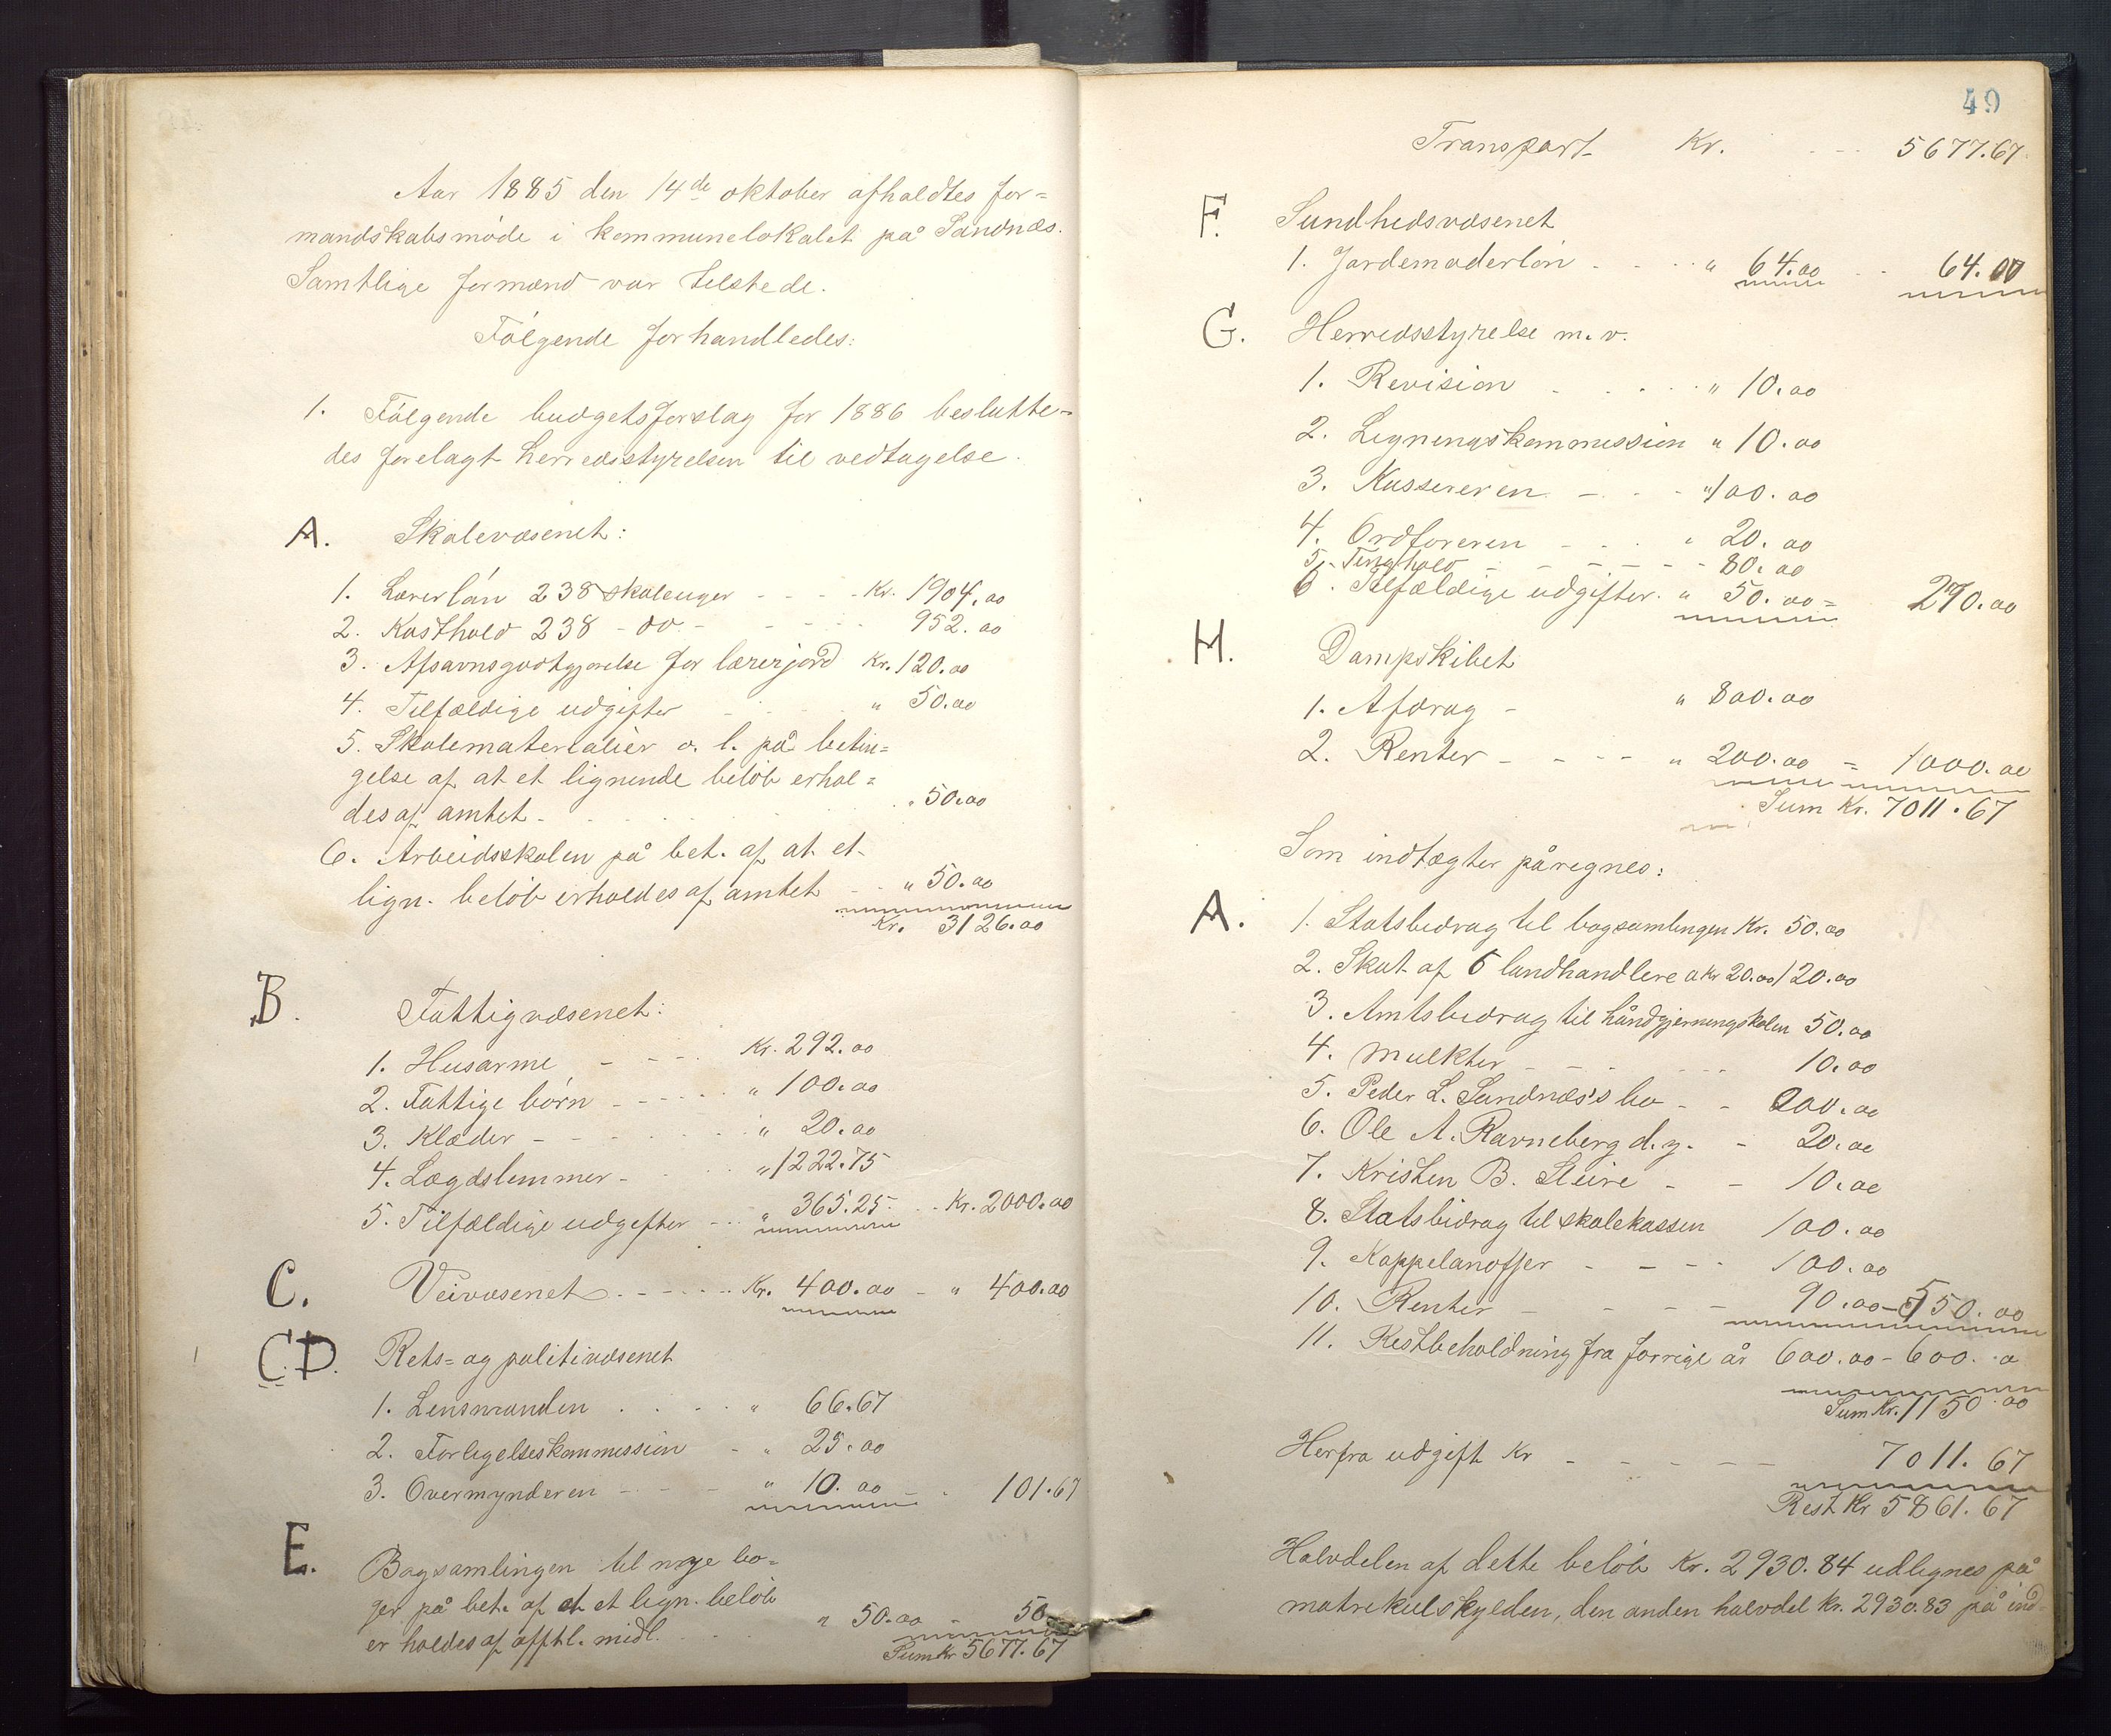 Aar 1885 den 14de oktober afholdtes for=
mandskabsmøde i kommunelokalet på Sandnæs.
Samtlige formænd var tilstede.
Følgende forhandledes:
1. Følgende budgetsforslag for 1886 beslutte=
des forelagt herredsstyrelsen til vedtagelse.
A. Skolevæsenet:
1. Lærerløn 238 skoleuger - - - - Kr. 1904.00
2. Kosthold 238 - do - - - - - 952.00
3. Afsavnsgodtgjørelse for lærerjord Kr. 120.00
4. Tilfældige udgifter - - " 50.00
5. Skolematerialier o. l. på betin=
gelse af at et lignende beløb erhol=
des af amtet - . . . . " 50.00
6. Arbeidsskolen på bet. af at et
lign. beløb erholdes af amtet - - " 50.00
Kr. 3126.00
B. Fattigvæsenet:
1. Husarme - - - - Kr. 292.00
2. Fattige børn - - - - - " 100.00
3. Klæder - - - - - " 20.00
4. Lægdslemmer - - " 1222.75
5. Tilfældige udgifter - - " 365.25 - - Kr. 2000.00
C. Veivæsenet - - - - - Kr. 400.00 - " 400.00
C.D. Rets= og politivæsenet
1. Lensmanden . . - - " 66.67
2. Forligelseskommission - " 25.00
3. Overmynderen - - - " 10.00 - - 101.67
E. Bogsamlingen til nye bø=
ger på bet. af at et lign. beløb
erholdes af offtl. midl. - - " 50.00 - 50
Sum Kr 5677.67
49
Transport Kr. - - - 5677.67
F. Sundhedsvæsenet
1. Jordemoderløn - - - " 64.00 - - 64.00
G. Herredsstyrelse m. v.
1. Revision - - - - " 10.00
2. Ligningskommission " 10.00
3. Kassereren - - - " 100.00
4. Ordføreren - - - " 20.00
5. Tinghold - - - - - - 80.00
6. Tilfældige udgifter. " 50.00 = 270.00
H. Dampskibet
1. Afdrag - " 800.00
2. Renter - - - - " 200.00 = 1000.00
Sum Kr. 7011.67
Som indtægter påregnes:
A. 1. Statsbidrag til bogsamlingen Kr. 50.00
2. Skat af 6 landhandlere a Kr 20.00 120.00
3. Amtsbidrag til håndgjerningskolen 50.00
4. Mulkter - - - - - 10.00
5. Peder L. Sandnæs's bo - - 200.00
6. Ole A. Ravneberg d. y. - 20.00
7. Kristen B. Steire - - 10.00
8. Statsbidrag til skolekassen 100.00
9. Kappelanoffer - - - - 100.00
10. Renter - - - - - 90.00 - 550.00
11. Restbeholdning fra forrige år 600.00 - 600.
Sum Kr. 1150.00
Herfra udgift Kr - - - - - 7011.67
Rest Kr 5861.67
Halvdelen af dette beløb Kr. 2930.84 udlignes på
matrikulskylden, den anden halvdel kr. 2930.83 på ind=